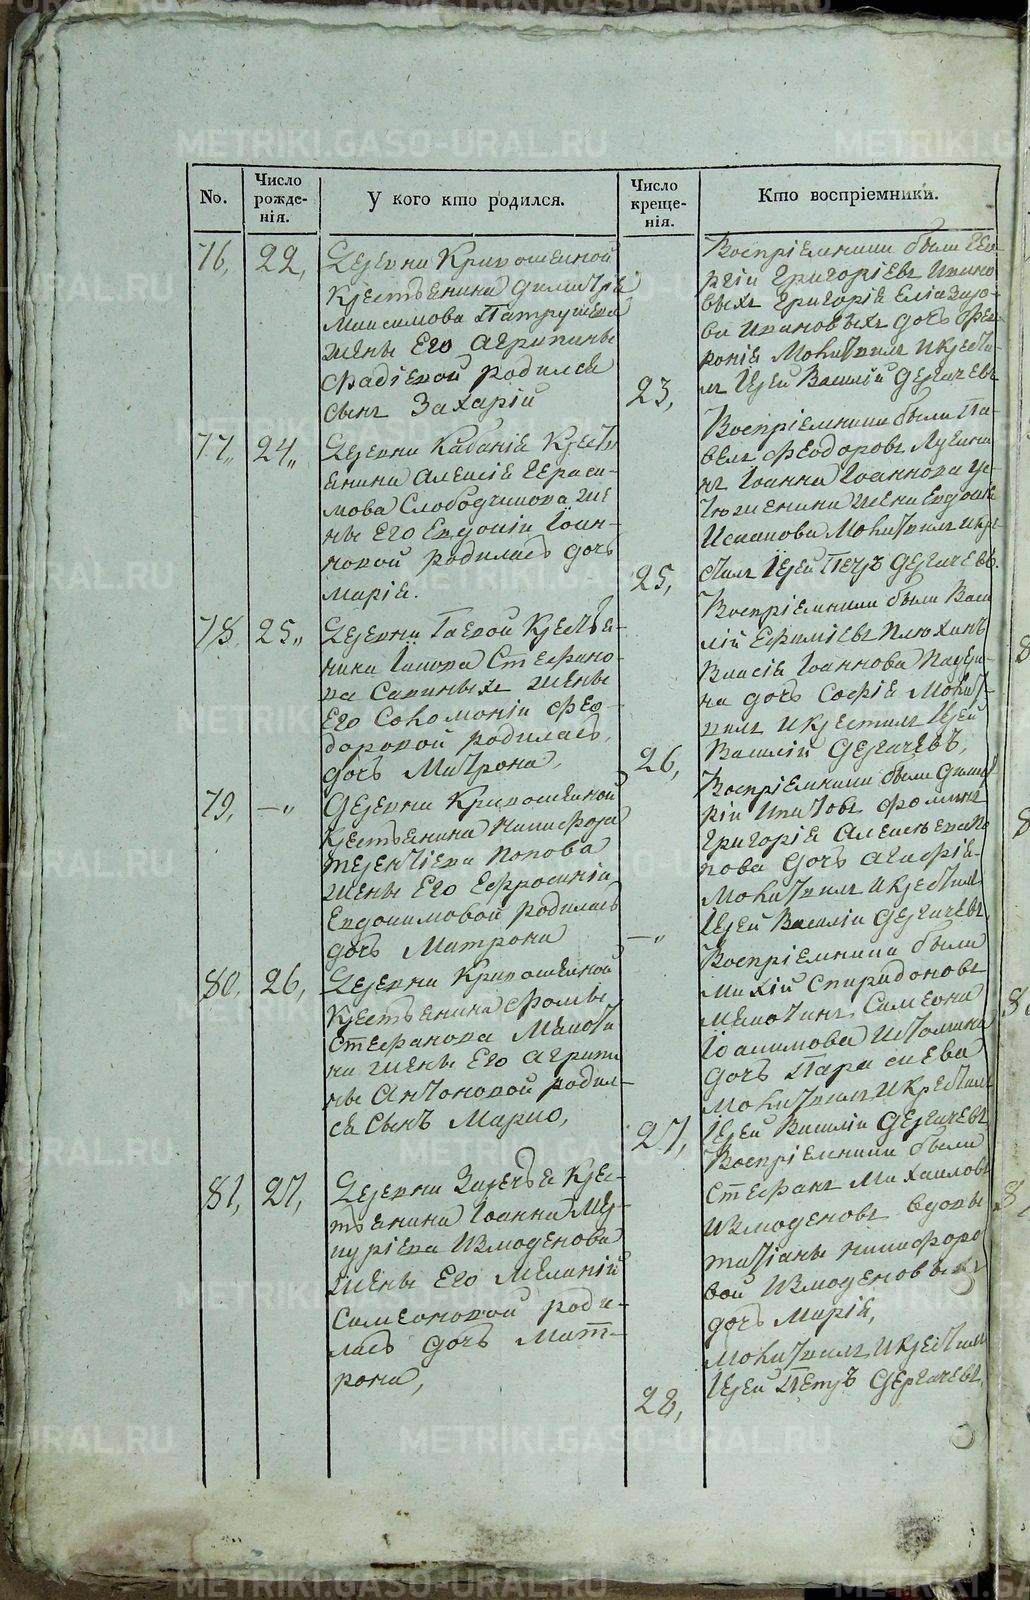 No.
Число рожде-
нія.
У кого кто родился.
Число
креще-
нія.
Кто воспріемники.
76, 22,
Деревни Кривошеиной
Крестьянина Димитрія
Максимова Патрушева
жены Его Агрипины
Фадіевой родился
сынъ Захарій
23,
Воспріемники были Геор
ргій Григоріевъ Иванов
Григорія Еліазаро-
ва Ивановыхъ дочь Фев
ронія Молитвилъ и крести
лъ Іерей Василій Дергачевъ
77, 24,
Деревни Кабаніе Крестья
янина Алексіе Гераси-
мова Слободчикова же
ны Его Евдокіи Іоан-
новой родилась дочь
Маріе.
25,
Воспріемники были Па-
велъ Феодоровъ
Іоанна Іоаннова
жена Евдокіе
Исаакова Молитвилъ и кре
стилъ Іерей Петръ Дергачевъ.
78, 25,
Деревни Гаевой Крестья-
нина Іакова Стефано-
ва Савиныхъ жены
Его Соломоніи Фео-
доровой родилась,
дочь Матрона,
26,
Воспріемники были Васи
лій Ефиміевъ Плюхинъ
Власіе Іоаннова
на дочь Софіе Молит-
вилъ и крестилъ Іерей
Василій Дергачевъ,
79, —"
Деревни Кривошеиной
Крестьянина Никифора
Терентіева Попова
жены Его Ефросиніи
Евдокимовой родилась
дочь Матрона
—"
Воспріемники были Димит
рій Ипатовъ Фоминъ
Григоріе Алексѣева По
пова дочь Агафіе
Молитвилъ и крестилъ
Іерей Василій Дергачевъ,
80, 26,
Деревни Кривошеиной
Крестьянина Фомы
Стефанова
на жены Его Агрипи
ны Антоновой родил-
се Сынъ Марко,
27,
Воспріемники были
Спиридоновъ
Симеона
Іоакимова Истомина
дочь Параскева
Молитвилъ и крестилъ
Іерей Василій Дергачевъ
81, 27,
Деревни Заречье Крес-
тьянина Іоанна Мер-
куріева Измоденова
жены Его Меланіи
Симеоновой роди-
лась дочь Мат-
рона,
28,
Воспріемники были
Стефанъ Михаиловъ
Измоденовъ вдовы
Татіаны Никифоро
вой Измоденовыхъ
дочь Маріе,
Молитвилъ и крестилъ
Іерей Петръ Дергачевъ,
METRIKI.GASO-URAL.RU